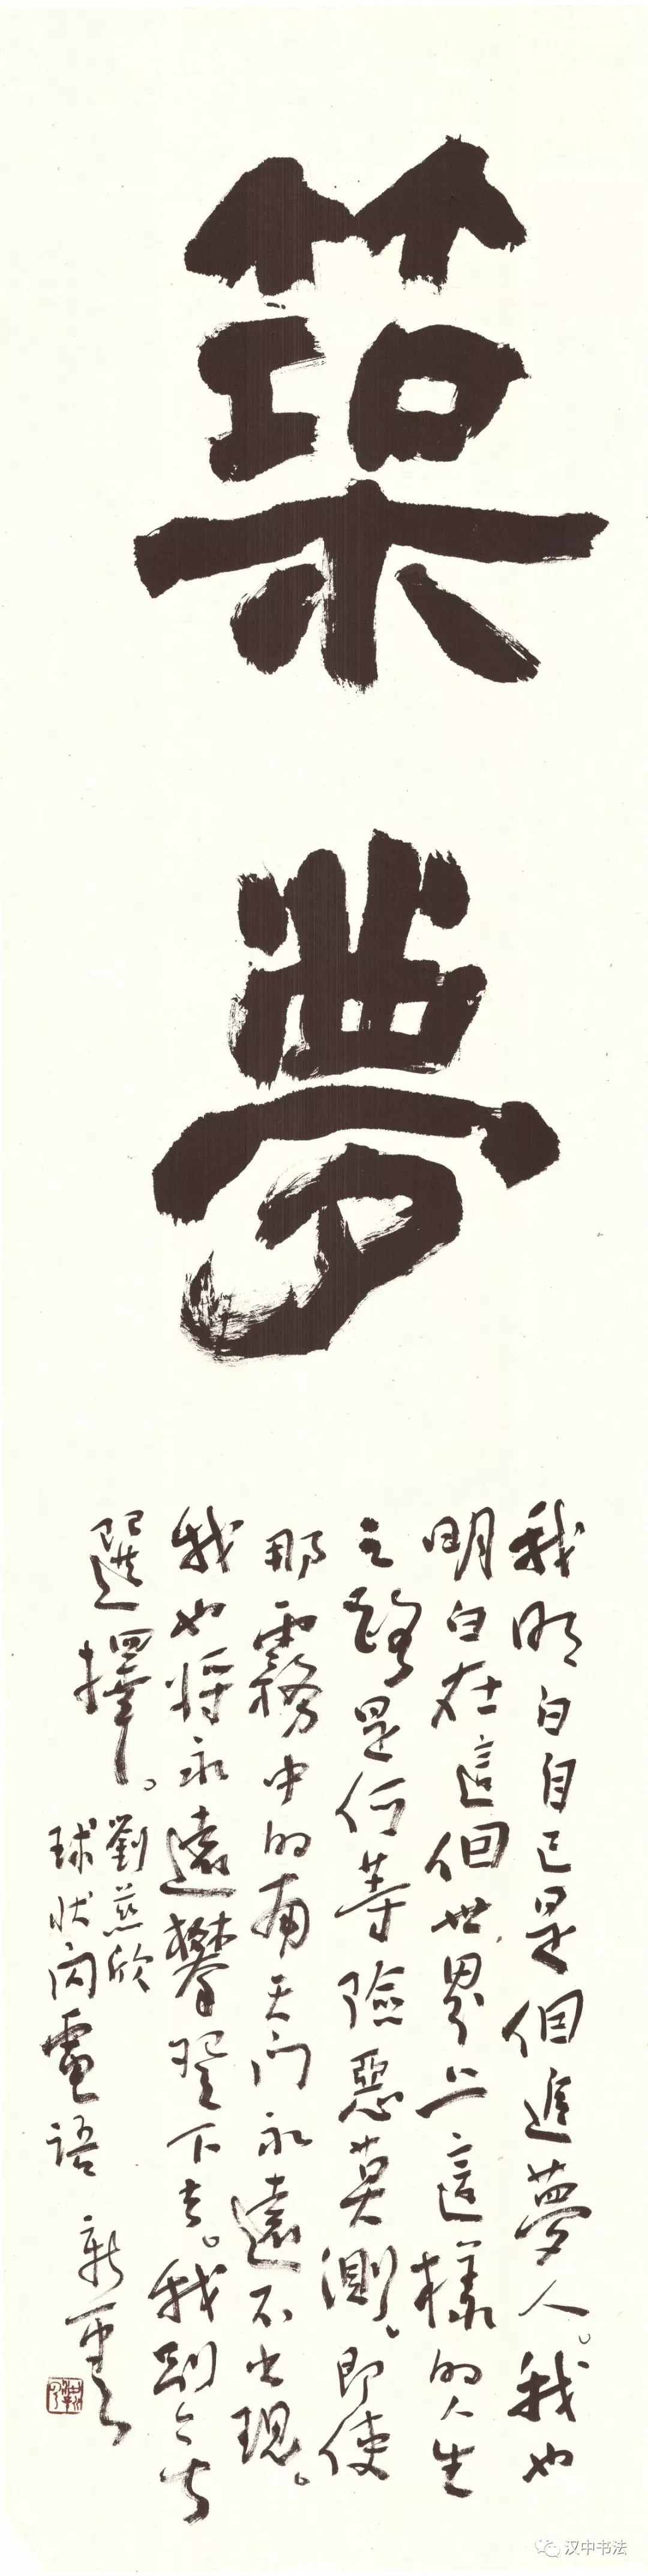 築夢
我明白自己是個追夢人。我也
明白在這個世界上這樣的人生
之路是何等險惡莫測，即使
那霧中的南天門永遠不出現。
我也将永遠攀登下去。我別无
選擇。
劉慈欣
球狀闪電語
汉中书法